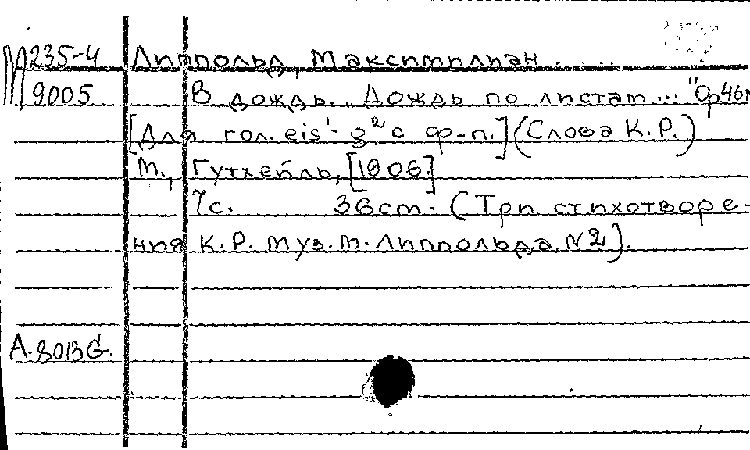 М235-4 Липпольд, Максимилиан.
9005 В дождь. Дождь по листам... "Ор46№
[Для гол. eis¹- g² с ф-п.] (Слова К.Р.)
М., Гутхейль, [1906]
7с. 36cm. (Три стихотворе-
ния К.Р. муз. М. Липпольда. N2).
А.8013G.